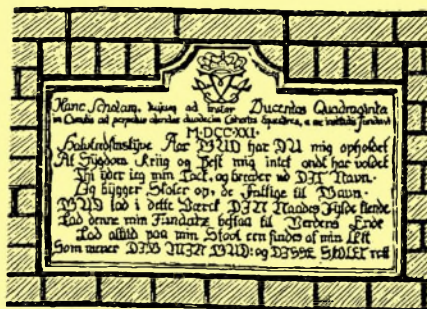 Hanc Scholam, hujus ad instar Ducentas Quadraginta
in ad perpetuo alendas duodecim Cohortes Equestres, a me Fundavi
M·DCC·XXI·
Halvtredsinstyve Aar GUD har DU mig opholdet
At Sygdom Kriig og Pest mig intet ondt har voldet
Thi yder ieg min Tack, og breder ud DIT Navn·
Og bygger Skoler op, de Fattige til Gavn·
GUD lad i dette Værck DIN Naades Fylde kiende
Lad denne min Fundatz bestaa til Verdens Ende
Lad altid paa min Stool een findes af min Ætt
Som mener DIG MIN GUD: og DISSE SKOLER rett